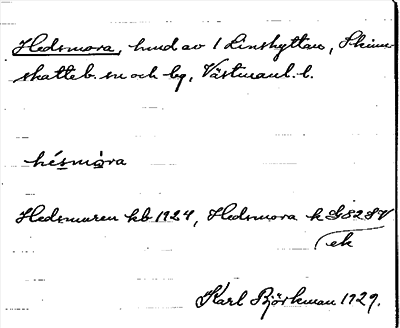 Hedsmora, hmd av 1 Linshyttan, Skinn-
skatteb. sn och bg, Västmanl. l.
hésmòra
Hedsmuren kb 1924, Hedsmora k G82SV
ek
Karl Björkman 1929.